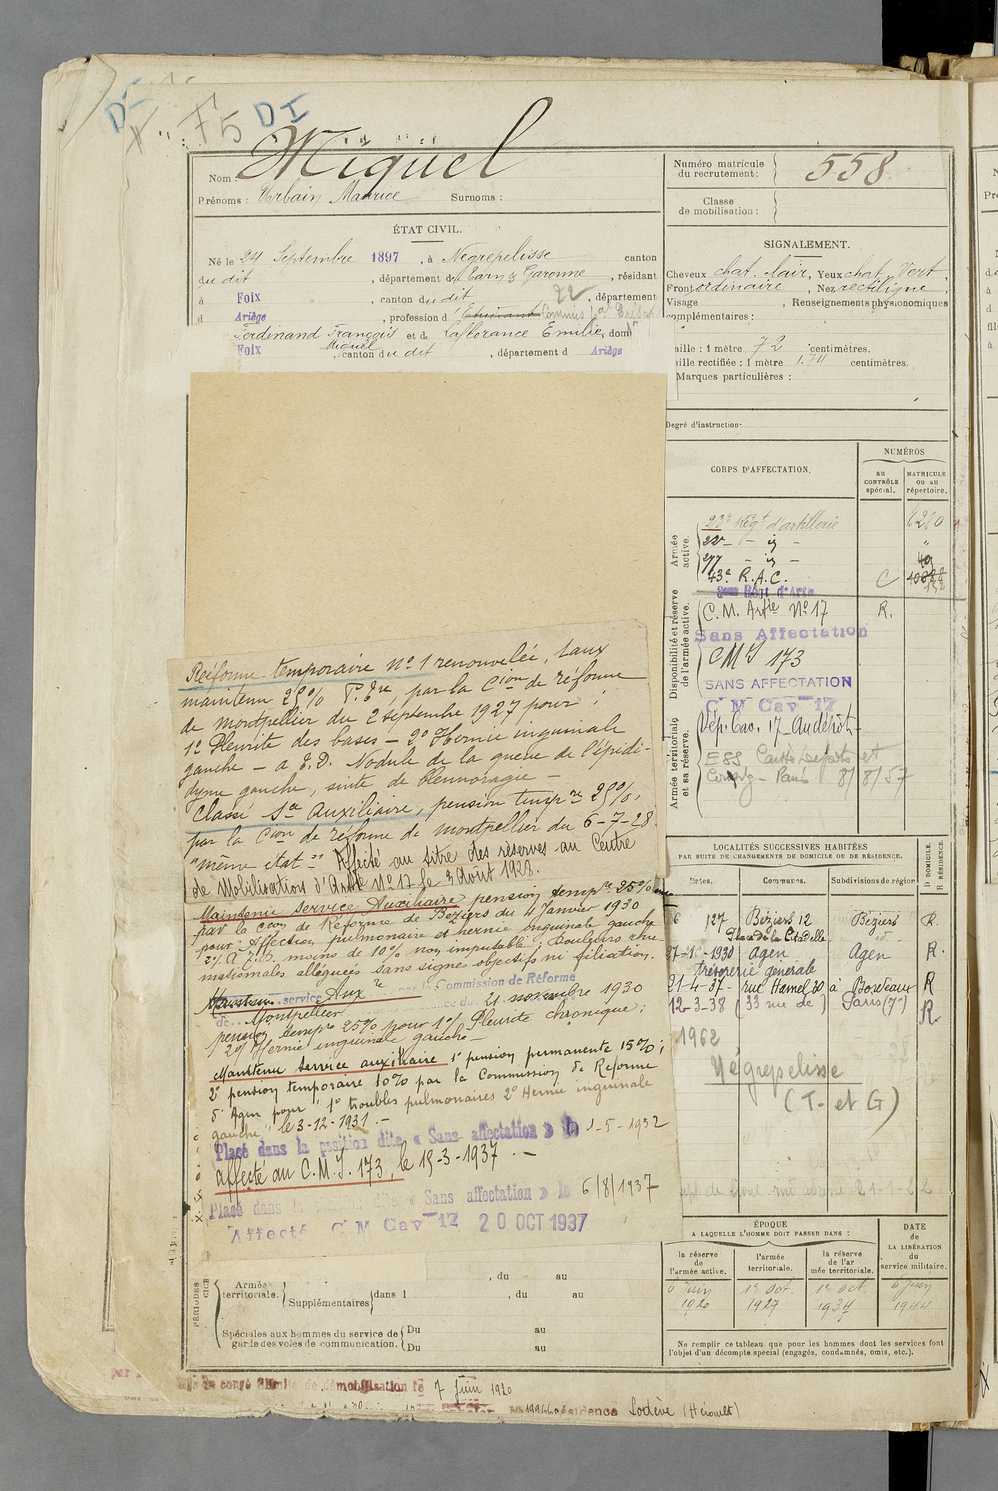 F5 DI
Nom : Miquel
Prénoms : Urbain Maurice Surnoms :
Numéro matricule du recrutement : 558
Classe de mobilisation :
ÉTAT CIVIL.
Né le 24 Septembre 1897, à Négrepelisse canton
du dit, département du Tarn & Garonne, résidant
à Foix, canton du dit, département
d Ariège, profession d'Etudiant Commis
Ferdinand François et de Laflorance Emilie, dom
Miquel
Foix, canton du dit, département d Ariège
SIGNALEMENT.
Cheveux chat. clair, Yeux chat. vert,
Front ordinaire, Nez rectiligne,
Visage , Renseignements physionomiques
complémentaires :
aille : 1 mètre 72 centimètres.
aille rectifiée : 1 mètre centimètres.
Marques particulières :
Degré d'instruction :
CORPS D'AFFECTATION.
NUMÉROS
au CONTRÔLE spécial.
MATRICULE ou au répertoire.
Armée active.
23e Régt d'artillerie
22e - id -
277 - id -
43e R.A.C. C
Disponibilité et réserve de l'armée active.
C.M. Artie No 17 R.
Sans Affectation
CMI 173
SANS AFFECTATION
C M Cav 17
Armée territoriale et sa réserve.
Dép. Cav. 17 - Au dépôt -
8/8/57
Réforme temporaire no 1 renouvelée, taux
maintenu 25% , par la Cion de réforme
de Montpellier du 2 septembre 1927 pour :
1o Pleurite des bases - 2o Hernie inguinale
gauche - a J.D. Nodule de la queue de l'épidi-
dyme gauche, suite de blennoragie -
Classé Sce Auxiliaire, pension tempre 25%,
par la Cion de réforme de Montpellier du 6-7-28
"même état" Affecté au titre des réserves au Centre
de Mobilisation d'Artie No 17 le 3 Août 1928.
Maintenu Service Auxiliaire pension tempre 25%
par la Cion de Réforme de Béziers du 4 Janvier 1930
pour : Affection pulmonaire et hernie inguinale gauche
moins de 10% non imputable : Douleurs rhu
matismales alléguées sans signes objectifs ni filiation.
Maintenu service Auxre par la Commission de Réforme
de Montpellier du 21 novembre 1930
pension tempre 25% pour 1o/ Pleurite chronique;
2o/ Hernie inguinale gauche -
Maintenu Service auxiliaire 1o pension permanente 15%;
2o pension temporaire 10% par la Commission de Réforme
d'Agen pour : 1o troubles pulmonaires 2o Hernie inguinale
gauche" le 3-12-1931 -
Placé dans la position dite « Sans affectation » le 1-5-1932
affecté au C.M.I. 173, le 15-3-1937. -
Placé dans la position dite « Sans affectation » le 6/8/1937
Affecté C M Cav 17 20 OCT 1937
LOCALITÉS SUCCESSIVES HABITÉES
PAR SUITE DE CHANGEMENTS DE DOMICILE OU DE RÉSIDENCE.
Dates. Communes. Subdivisions de région D DOMICILE. R RÉSIDENCE
127 Béziers 12 Béziers R.
Place de la Citadelle
1930 Agen Agen R.
trésorerie générale
21-4-37 - rue Hamel 30 à Bordeaux R
12-3-38 (33 rue de ) Paris (7e) R.
1962
Négrepelisse
(T. et G)
ÉPOQUE
A LAQUELLE L'HOMME DOIT PASSER DANS :
la réserve de l'armée active.
l'armée territoriale.
la réserve de l'armée territoriale.
DATE de LA LIBÉRATION du service militaire.
6 Juin 1920
1er Oct. 1927
1er oct. 1934
6 Juin 1944
Ne remplir ce tableau que pour les hommes dont les services font
l'objet d'un décompte spécial (engagés, condamnés, omis, etc.).
PÉRIODES
Armée territoriale.
Supplémentaires dans l , du au
, du au
Spéciales aux hommes du service de
garde des voies de communication.
Du au
Du au
congé illimité de démobilisation le 7 Juin 1920
résidence Lodève (Hérault)